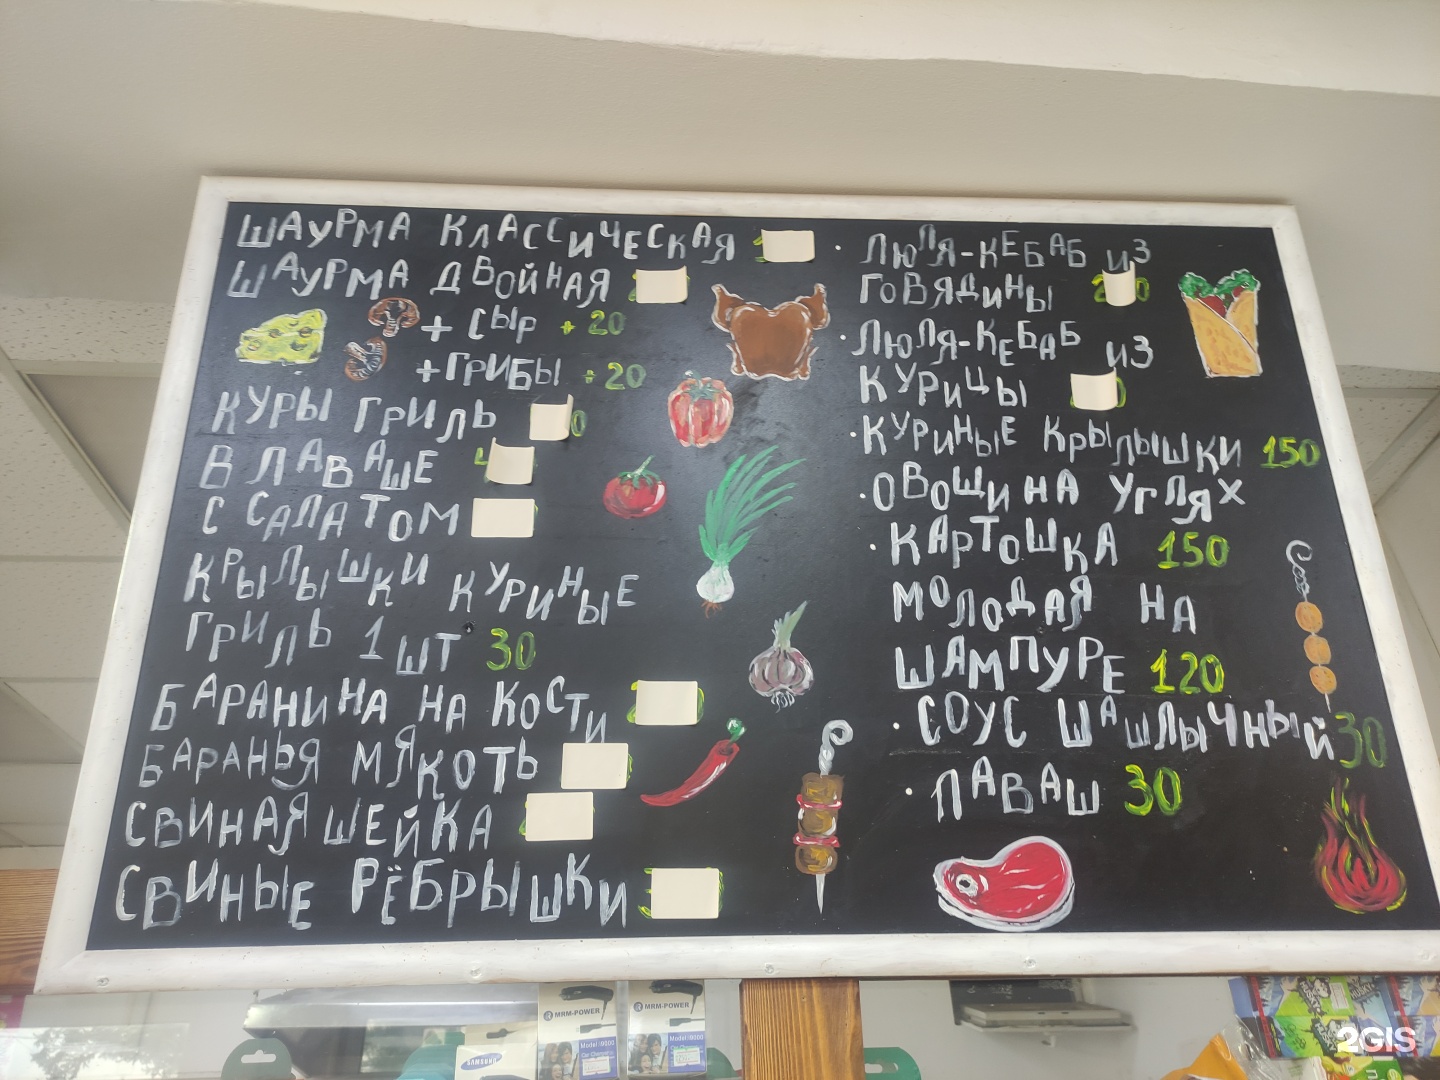 ШАУРМА КЛАССИЧЕСКАЯ
ШАУРМА ДВОЙНАЯ
+ СЫР +20
+ГРИБЫ +20
КУРЫ ГРИЛЬ
В ЛАВАШЕ
С САЛАТОМ
КРЫЛЫШКИ КУРИНЫЕ
ГРИЛЬ 1 ШТ 30
БАРАНИНА НА КОСТИ
БАРАНЬЯ МЯКОТЬ
СВИНАЯ ШЕЙКА
СВИНЫЕ РЁБРЫШКИ
· ЛЮЛЯ-КЕБАБ ИЗ
ГОВЯДИНЫ
· ЛЮЛЯ-КЕБАБ ИЗ
КУРИЦЫ
· КУРИНЫЕ КРЫЛЫШКИ 150
· ОВОЩИ НА УГЛЯХ
· КАРТОШКА 150
МОЛОДАЯ НА
ШАМПУРЕ 120
· СОУС ШАШЛЫЧНЫЙ 30
· ЛАВАШ 30
MRM-POWER
MRM-POWER
SAMSUNG
2GIS